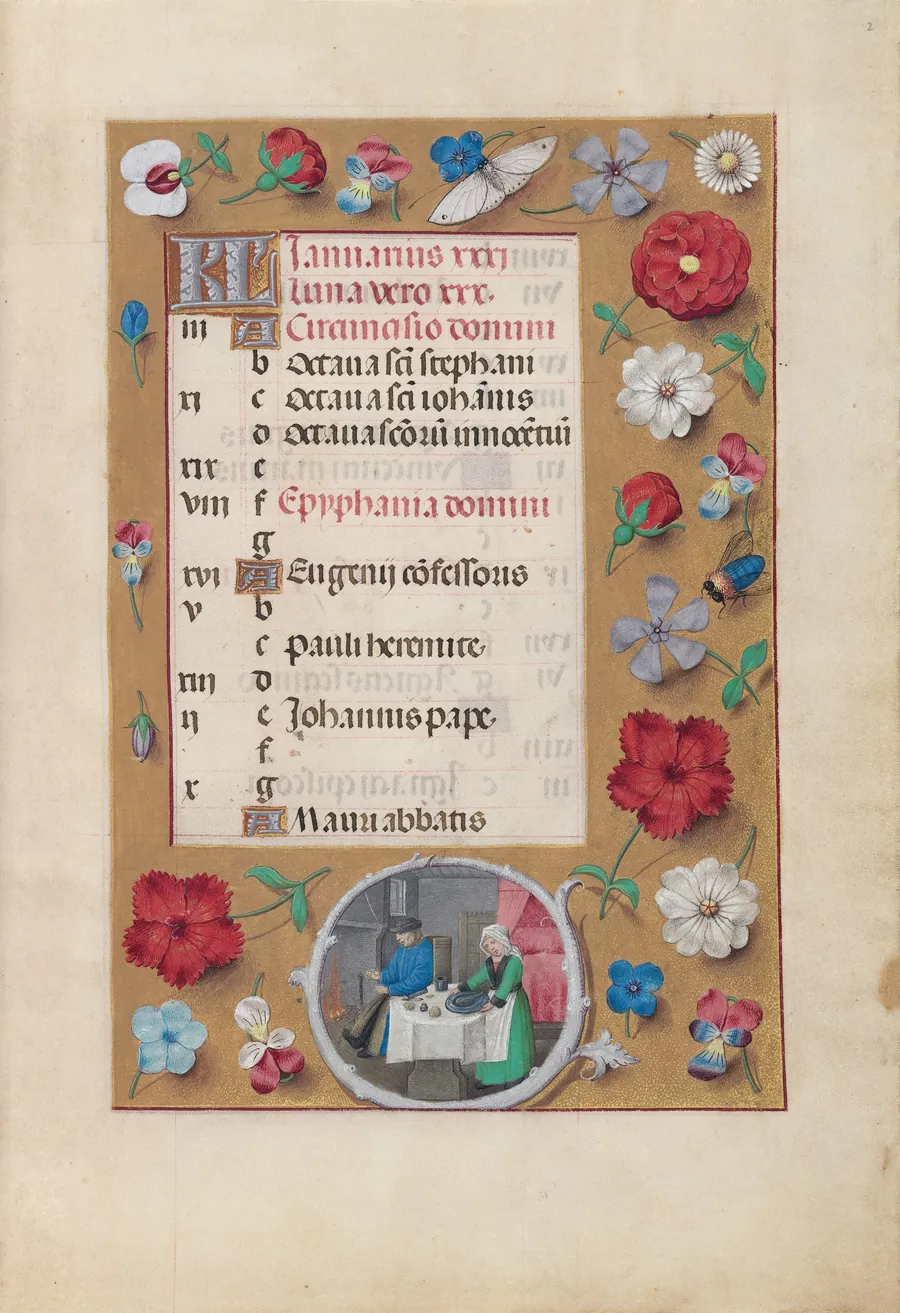 2
KL Ianuarius xxxj
Luna vero xxx.
iii A Circumcisio domini
b Octaua scī stephani
xj c Octaua scī iohānis
d Octaua scōrū innocētiū
xix e
viii f Epyphania domini
g
xvj A Eugenij cōfessoris
v b
c Pauli heremite.
xiij d
ij e Johannis pape.
f
x g
A Mauri abbatis